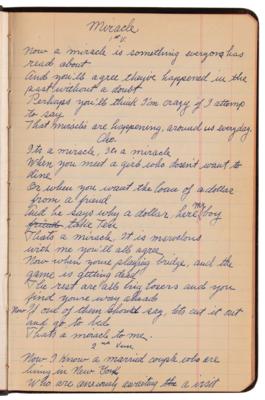 Miracle
1st V.
Now a miracle is something everyone has
read about
And you'll agree they've happened in the
past without a doubt
Perhaps you'll think I'm crazy if I attemp
to say
That miracles are happening, around us everyday.
Cho.
Its a miracle, Its a miracle
When you meet a girl who doesn't want to
dine
Or when you want the loan of a dollar
from a friend
And he says why a dollar, here my boy
friend take Ten
Thats a miracle, it is marvelous
with me you'll all agree
Now when youre playing bridge, and the
game is getting dead
The rest are all big losers and you
find youre way ahead
Now if one of them should say, lets cut it out
and go to bed
Thats a miracle to me.
2nd Verse
Now I know a married couple who are
living in New York
Who are anxiously awaiting the a visit